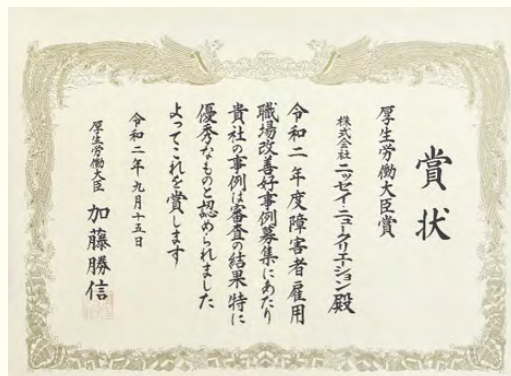 賞状
厚生労働大臣賞
株式会社ニッセイニュークリエーション殿
令和二年度障害者雇用
職場改善好事例募集にあたり
貴社の事例は審査の結果特に
優秀なものと認められました
よってこれを賞します
令和二年九月十五日
厚生労働大臣 加藤勝信